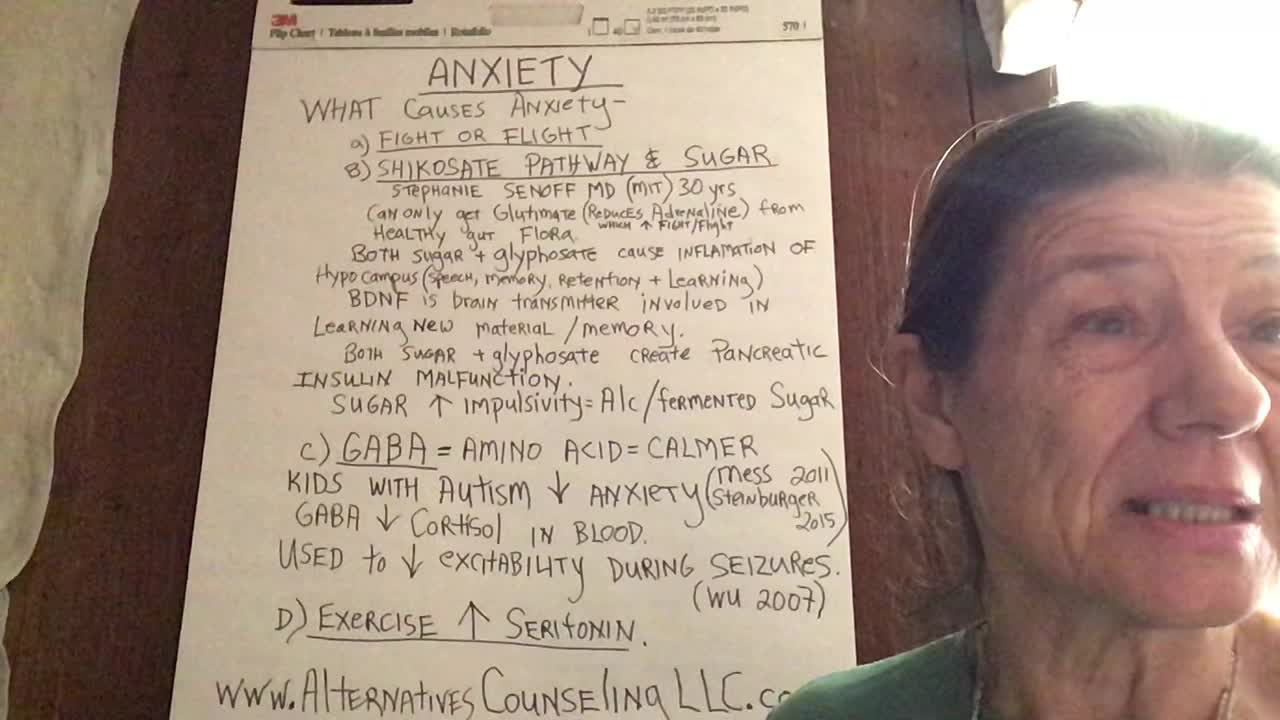 3M
Flip Chart | Tableau à feuilles mobiles | Rotafolio
570
ANXIETY
WHAT CAUSES ANXIETY-
a) FIGHT OR FLIGHT
B) SHIKOSATE PATHWAY & SUGAR
STEPHANIE SENOFF MD (MIT) 30 yrs
CAN ONLY get Glutimate (REDUCES ADRENALINE) FROM
WHICH ↑ FIGHT/Flight
HEALTHY gut FLORA.
BOTH Sugar + glyphosate CAUSE INFLAMATION OF
Hypocampus (SPEECH, MEMORY, RETENTION + LEARNING)
BDNF is brain transmitter involved IN
LEARNING NEW MATERIAL / MEMORY.
BOTH SUGAR + glyphosate CREATE PANCREATIC
INSULIN MALFUNCTION.
SUGAR ↑ Impulsivity = Alc/fermented Sugar
C) GABA = AMINO ACID = CALMER
KIDS WITH AUTISM ↓ ANXIETY (MESS 2011
STEINBURGER
2015)
GABA ↓ CORTISOL IN BLOOD.
USED to ↓ EXCITABILITY DURING SEIZURES.
(WU 2007)
D) EXERCISE ↑ SERITONIN.
WWW.ALTERNATIVESCOUNSELINGLLC.co